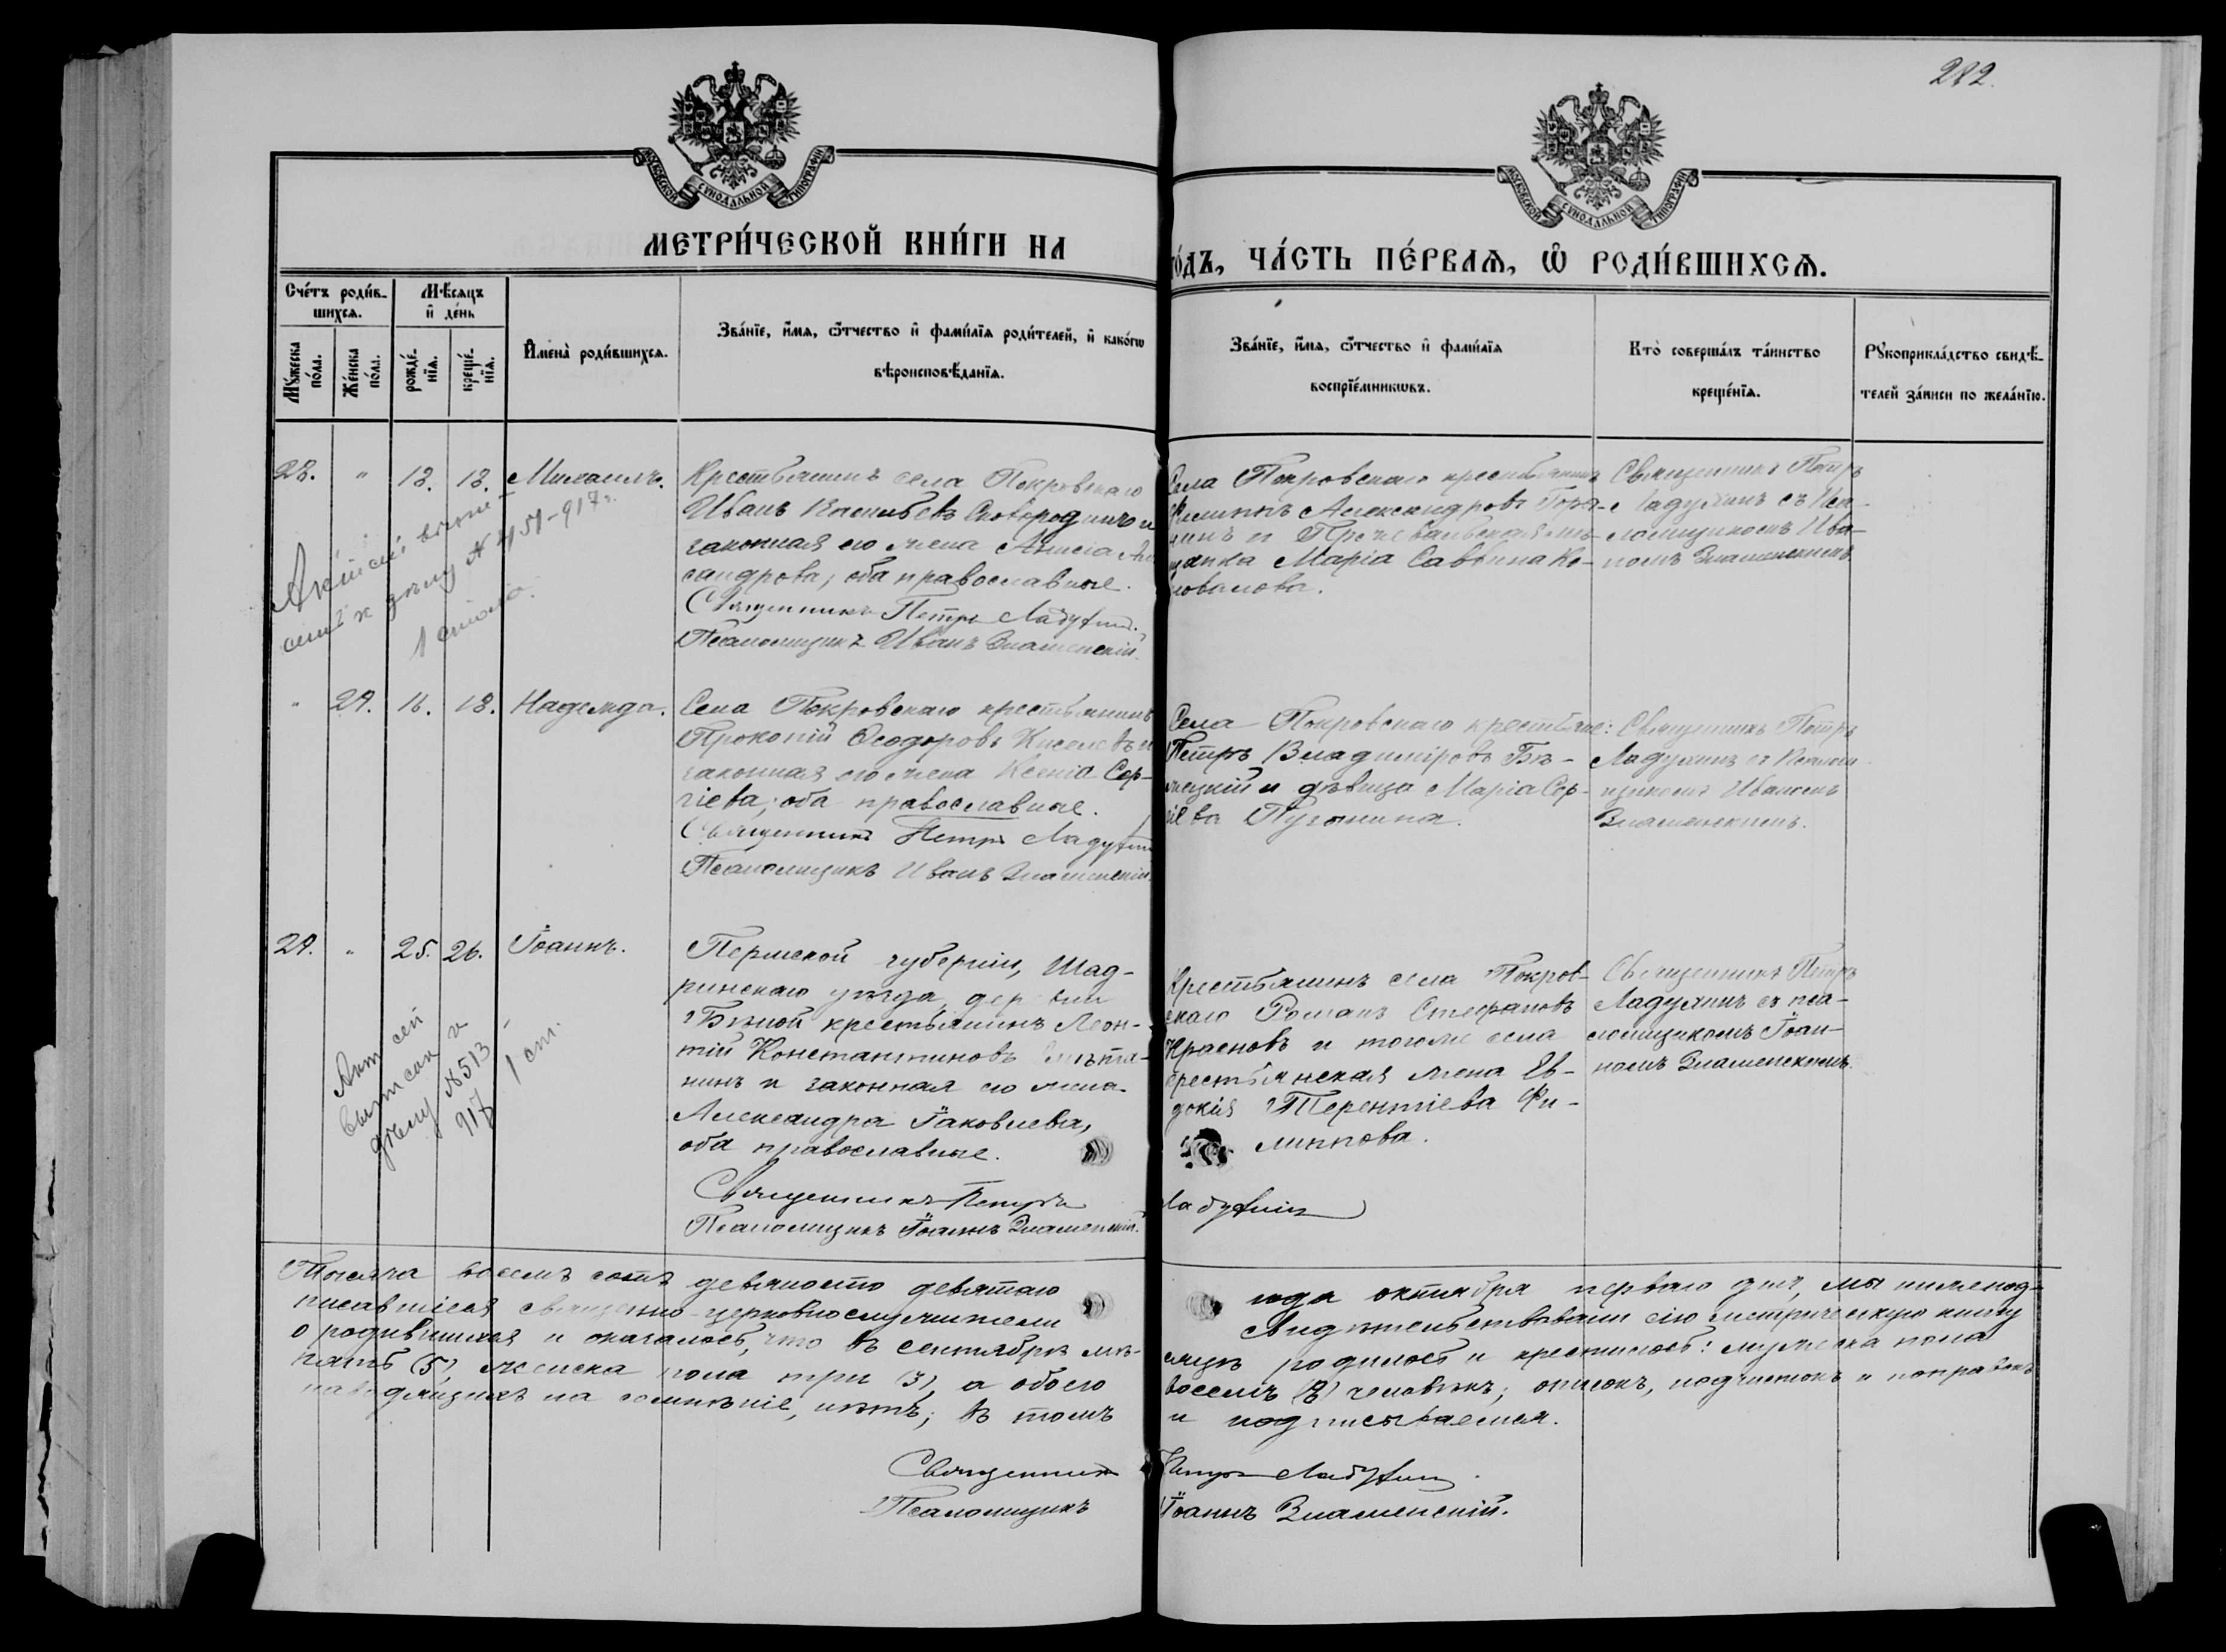 282.
МОСКОВСКОЙ СѴНОДАЛЬНОЙ ТИПОГРАФІИ
МОСКОВСКОЙ СѴНОДАЛЬНОЙ ТИПОГРАФІИ
МЕТРИ́ЧЕСКОЙ КНИ́ГИ НА
го́дъ, ЧА́СТЬ ПЕ́РВАѦ, Ѡ РОДИ́ВШИХСѦ.
Сче́тъ роди́в-
шихсѧ.
Мꙋ́жеска по́ла.
Же́нска по́ла.
Мѣ́сѧцъ
и҆ де́нь
рожде́-
нїѧ.
креще́-
нїѧ.
И҆мена̀ роди́вшихсѧ.
Зва́нїе, и҆́мѧ, ѻ҆́тчество и҆ фами́лїѧ роди́телей, и҆ како́гѡ
вѣроисповѣ́данїѧ.
Зва́нїе, и҆́мѧ, ѻ҆́тчество и҆ фами́лїѧ
воспрїе́мникѡвъ.
Кто̀ соверша́лъ та́инство
креще́нїѧ.
Рꙋкоприкла́дство свидѣ́-
телей за́писи по жела́нїю.
28. " 18. 18. Михаилъ.
Крестьянинъ села Покровскаго
Иванъ Васильевъ Сковородинъ и
законная его жена Анисія Але
сандрова, оба православные.
Священникъ Петръ Ладухин.
Псаломщикъ Иванъ Знаменскій.
Села Покровскаго крестьянинъ
Филиппъ Александровъ
и мѣ-
щанка Марія Саввина Ко-
новалова.
Священникъ Петръ
Ладухинъ съ Пса-
ломщикомъ Ива-
номъ Знаменскимъ.
къ дѣлу N 451-917 г.
1 стола.
" 29. 16. 18. Надежда.
Села Покровскаго крестьянинъ
Прокопій Ѳеодоровъ Киселевъ и
законная его жена Ксенія Сер-
гіева, оба православные.
Священникъ Петръ Ладухин
Псаломщикъ Иванъ Знаменскій.
Села Покровскаго крестьяне:
Петръ Владиміровъ Бѣ-
лецкій и дѣвица Марія Сер-
гіева
Священникъ Петръ
Ладухинъ съ Псалом
щикомъ Иваномъ
Знаменскимъ.
29. " 25. 26. Іоаннъ.
Пермской губерніи, Шад-
ринскаго уѣзда, деревни
крестьянинъ Леон-
тій Константиновъ
нинъ и законная его жена
Александра Іаковлева,
оба православные.
Священникъ Петръ
Псаломщикъ Іоаннъ Знаменскій.
Крестьянинъ села Покров-
скаго Романъ Стефановъ
Красновъ и тогоже села
крестьянская жена Ев-
докія Терентіева Фи-
липпова.
Ладухинъ
Священникъ Петръ
Ладухинъ съ пса-
ломщикомъ Іоан-
номъ Знаменскимъ.
Акт сей
выписан к
дѣлу N 513 -
917 1 ст.
Тысяча восемь сотъ девяносто девятаго
года октября перваго дня, мы нижепод-
писавшіеся священно-церковнослужители
свидѣтельствовали сію метрическую книгу
о родившихся и оказалось, что въ сентябрѣ мѣ-
сяцѣ родилось и крестилось: мужеска пола
пять (5), женска пола три (3), а обоего
восемь (8) человѣкъ; описокъ, подчистокъ и поправокъ
наводящихъ на сомнѣніе, нѣтъ; въ томъ
и подписываемся.
Священникъ Петръ Ладухин
Псаломщикъ Іоаннъ Знаменскій.